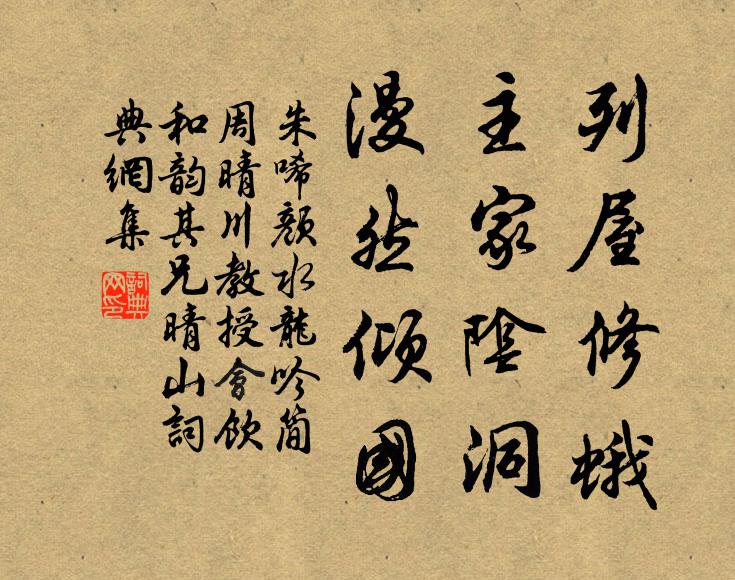 列屋修蛾
主家陰洞
漫然傾國
朱唏顏水龍吟簡
周晴川教授會飲
和韵其兄晴山詞
典網集
詞典
网印